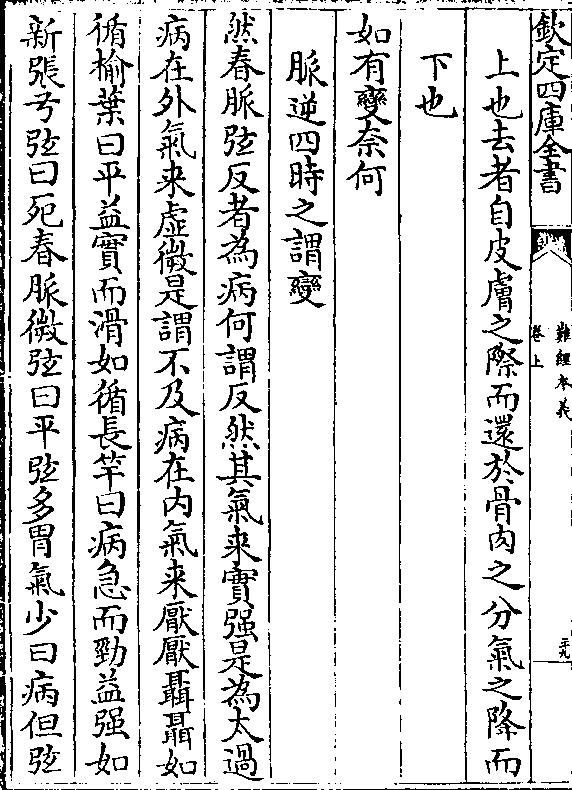 欽定四庫全書
難經本義
卷上
二九
上也去者自皮膚之際而還於骨肉之分氣之降而
下也
如有變奈何
脈逆四時之謂變
然春脈弦反者為病何謂反然其氣來實强是為太過
病在外氣來虛微是謂不及病在内氣来厭厭聶聶如
循榆葉曰平益實而滑如循長竿曰病急而勁益强如
新張弓弦曰死春脈微弦曰平弦多胃氣少曰病但弦